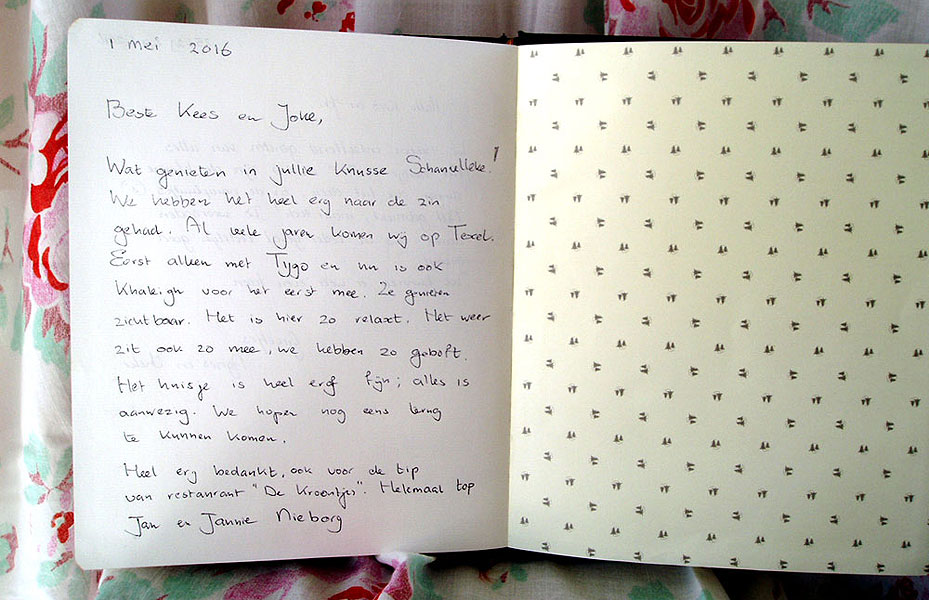 1 mei 2016
Beste Kees en Joke,
Wat genieten in jullie knusse Schanulleke!
We hebben het heel erg naar de zin
gehad. Al vele jaren komen wij op Texel.
Eerst alleen met Tygo en nu is ook
Khaleigh voor het eerst mee. Ze genieten
zichtbaar. Het is hier zo relaxt. Het weer
zit ook zo mee, we hebben zo geboft.
Het huisje is heel erg fijn; alles is
aanwezig. We hopen nog eens terug
te kunnen komen.
Heel erg bedankt, ook voor de tip
van restaurant "De Kroontjes". Helemaal top
Jan en Jannie Nieborg